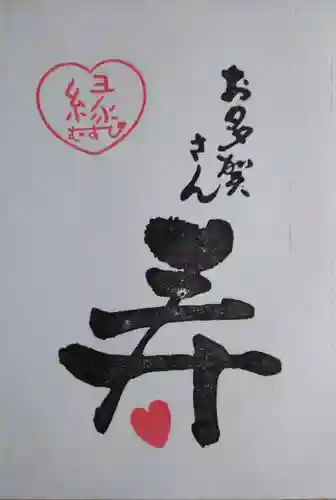 縁
むすび
お多賀
さん
寿